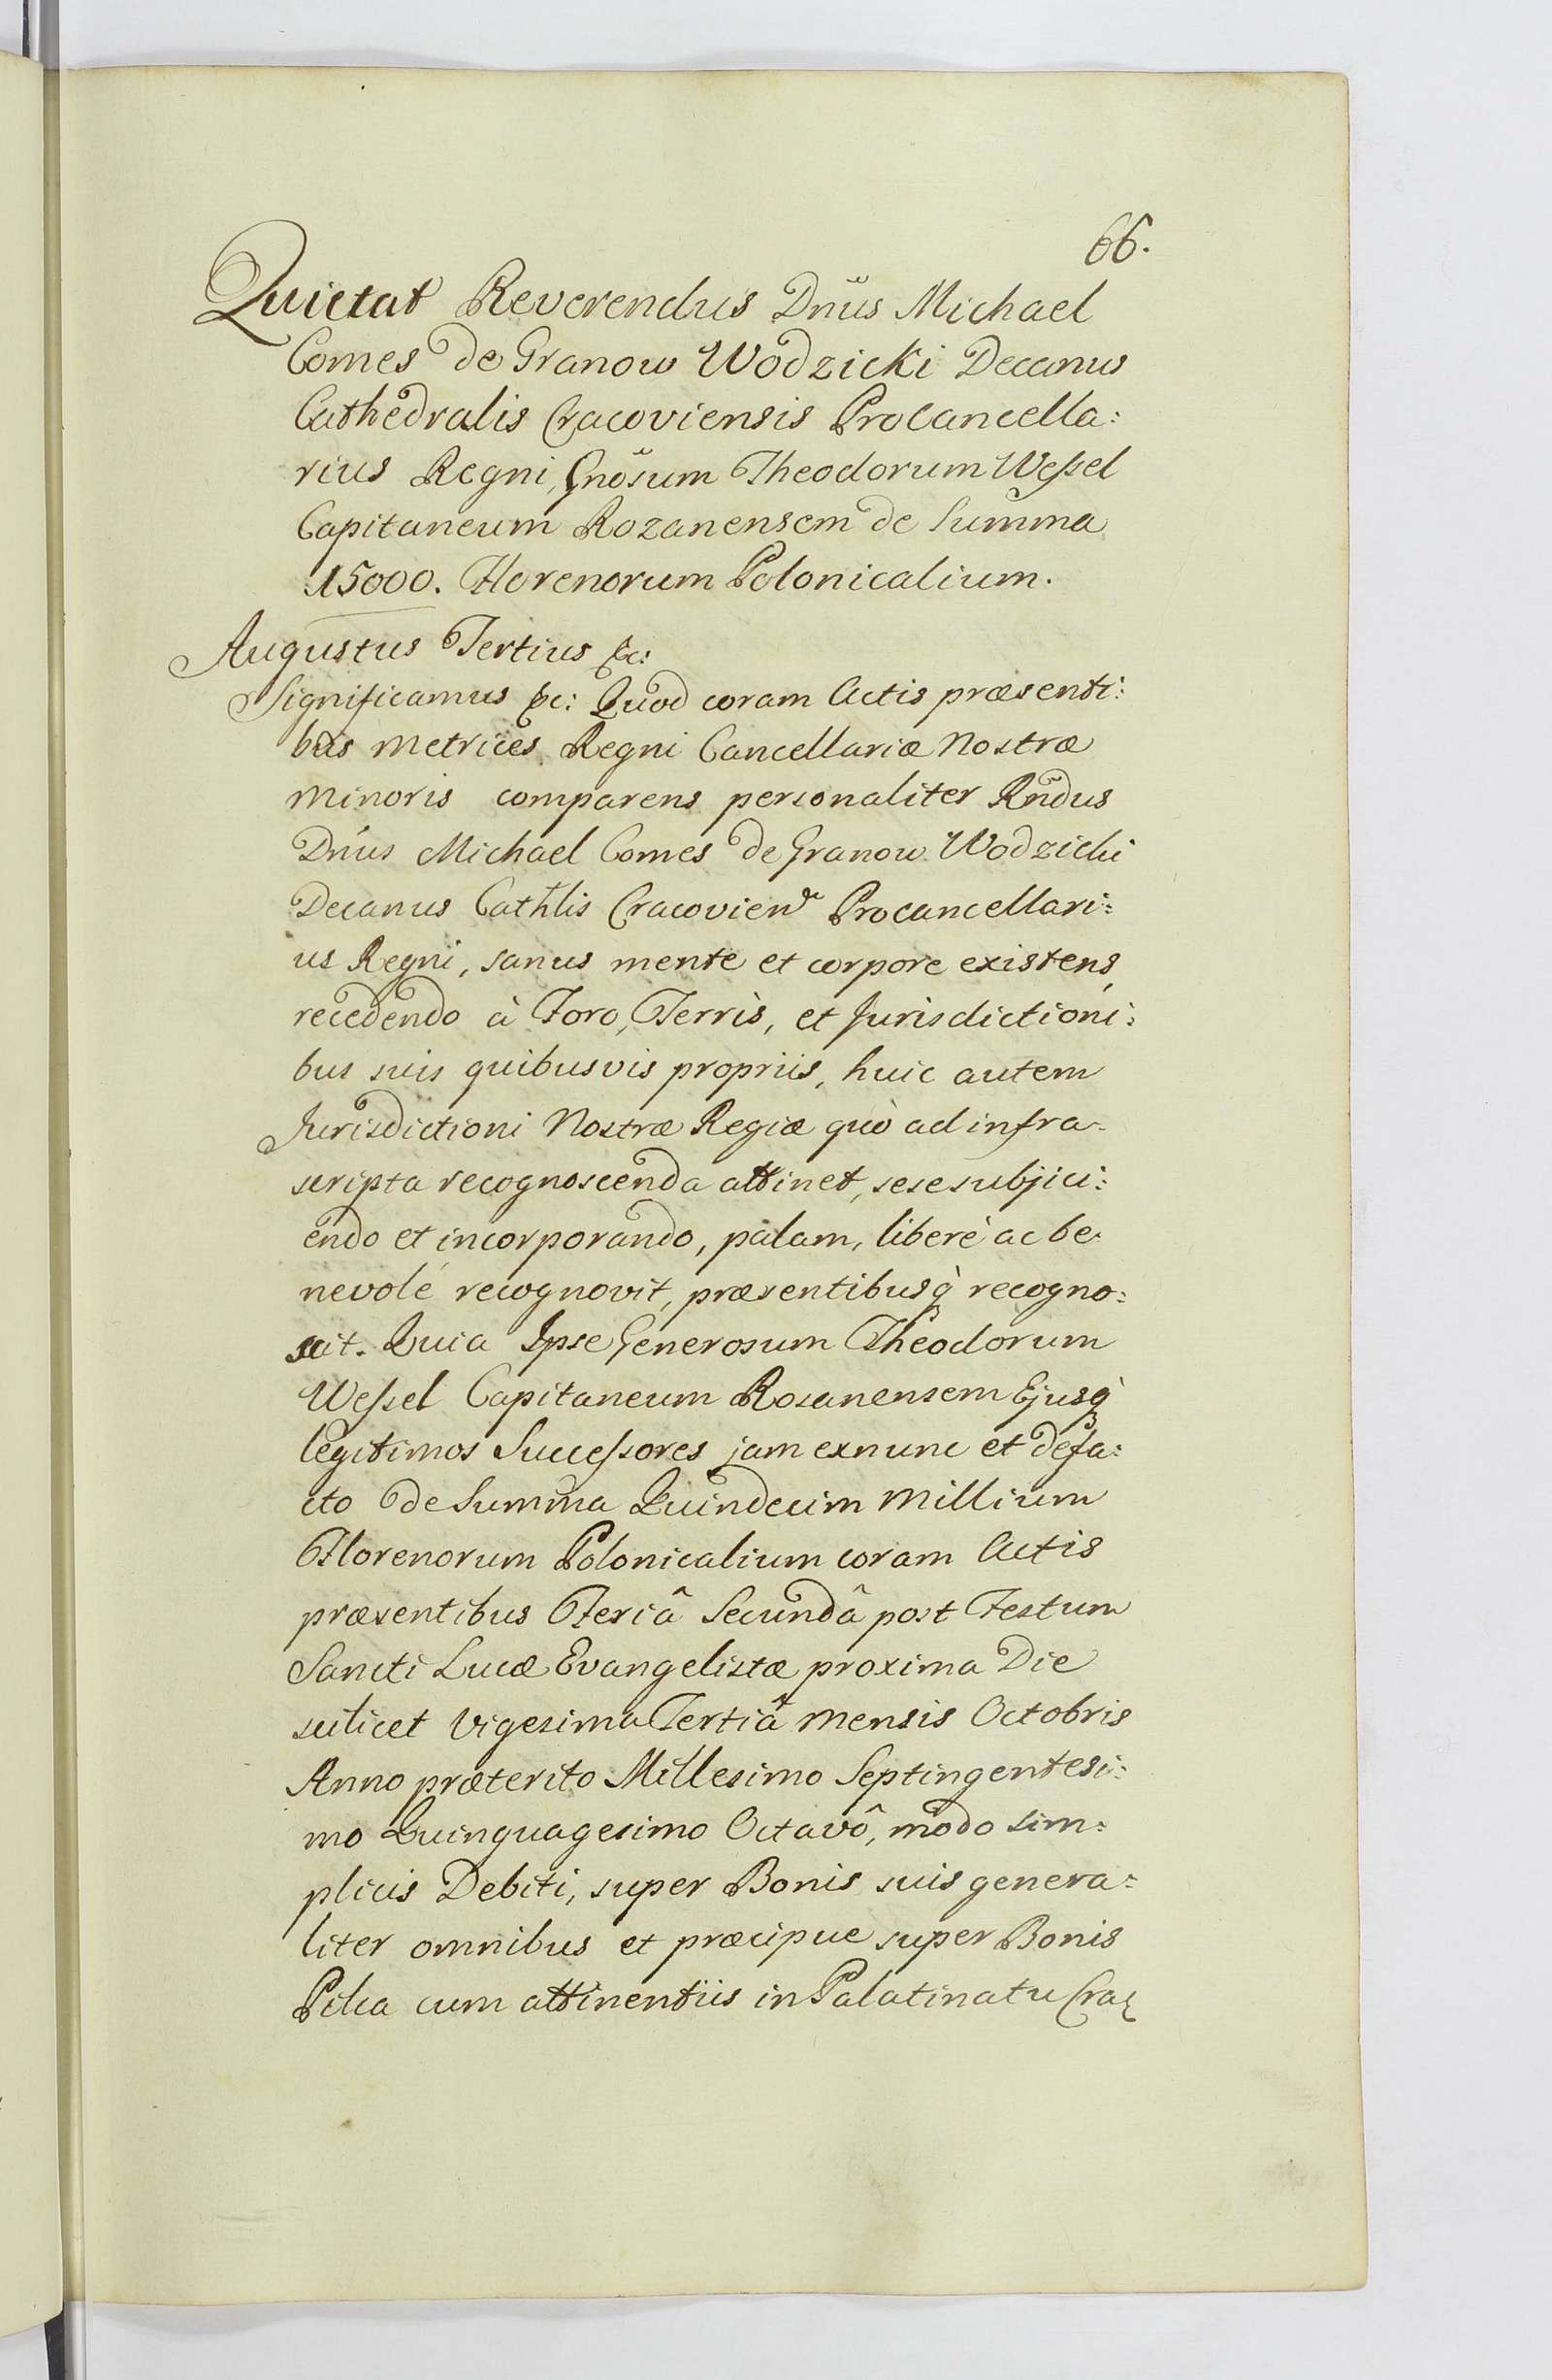 66.
Quietat Reverendus Dnus Michael
Comes de Granow Wodzicki Decanus
Cathedralis Cracoviensis ProCancella:
rius Regni, Gnosum Theodorum Weſsel
Capitaneum Rozanensem de Summa
15000. Florenorum Polonicalium.
Augustus Tertius &c:
Significamus &c: Quod coram Actis præsenti:
bus Metrices Regni Cancellariæ Nostræ
Minoris comparens personaliter Rndus
Dnus Michael Comes de Granow Wodzicki
Decanus Cathlis Cracovien Procancellari:
us Regni, sanus mente et corpore existens,
recedendo à Foro, Terris, et Jurisdictioni:
bus suis quibusvis propriis, huic autem
Jurisdictioni Nostræ Regiæ quò ad infra-
scripta recognoscenda attinet, sese subjici:
endo et incorporando, palam, liberè ac be-
nevolé recognovit, præsentibusq̀ recogno:
scit. Quia Ipse Generosum Theodorum
Weſsel Capitaneum Rosanensem Ejusq̀
legitimos Succeſsores jam exnunc et defa:
cto de Summa Quindecim Millium
Florenorum Polonicalium coram Actis
præsentibus Feriâ Secundâ post Festum
Sancti Lucæ Evangelistæ proxima Die
scilicet Vigesima Tertiâ Mensis Octobris
Anno præterito Millesimo Septingentesi:
mo Quinquagesimo Octavô, modo sim:
plicis Debiti, super Bonis suis genera:
liter omnibus et præcipue super Bonis
Pilca cum attinentiis in Palatinatu Crac